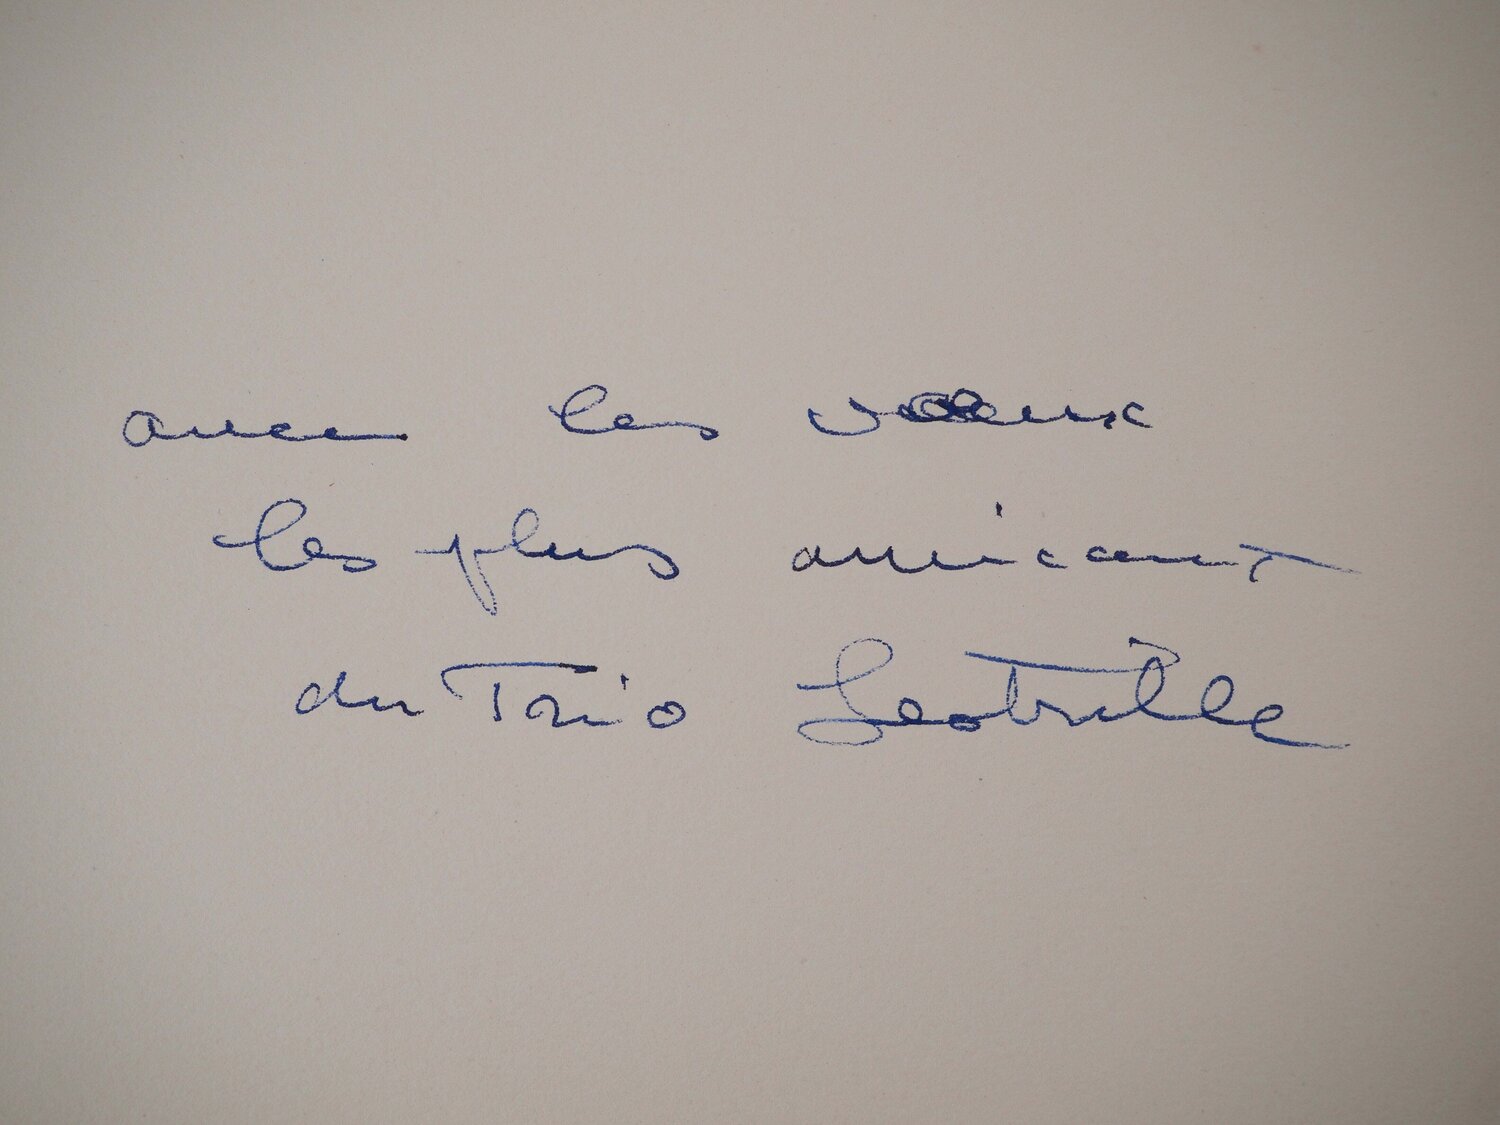 avec les voeux
les plus amicaux
du Trio Lestrille